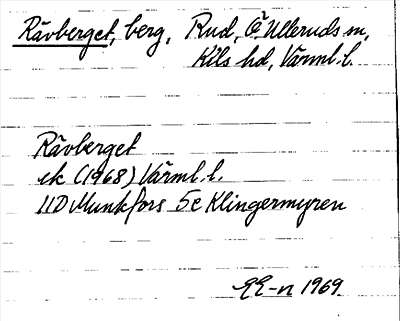 Rävberget, berg, Rud, Ö. Ulleruds sn,
Kils hd, Värml. l.
Rävberget
ek (1968) Värml. l.
11D Munkfors 5e Klingermyren
EE-n 1969.